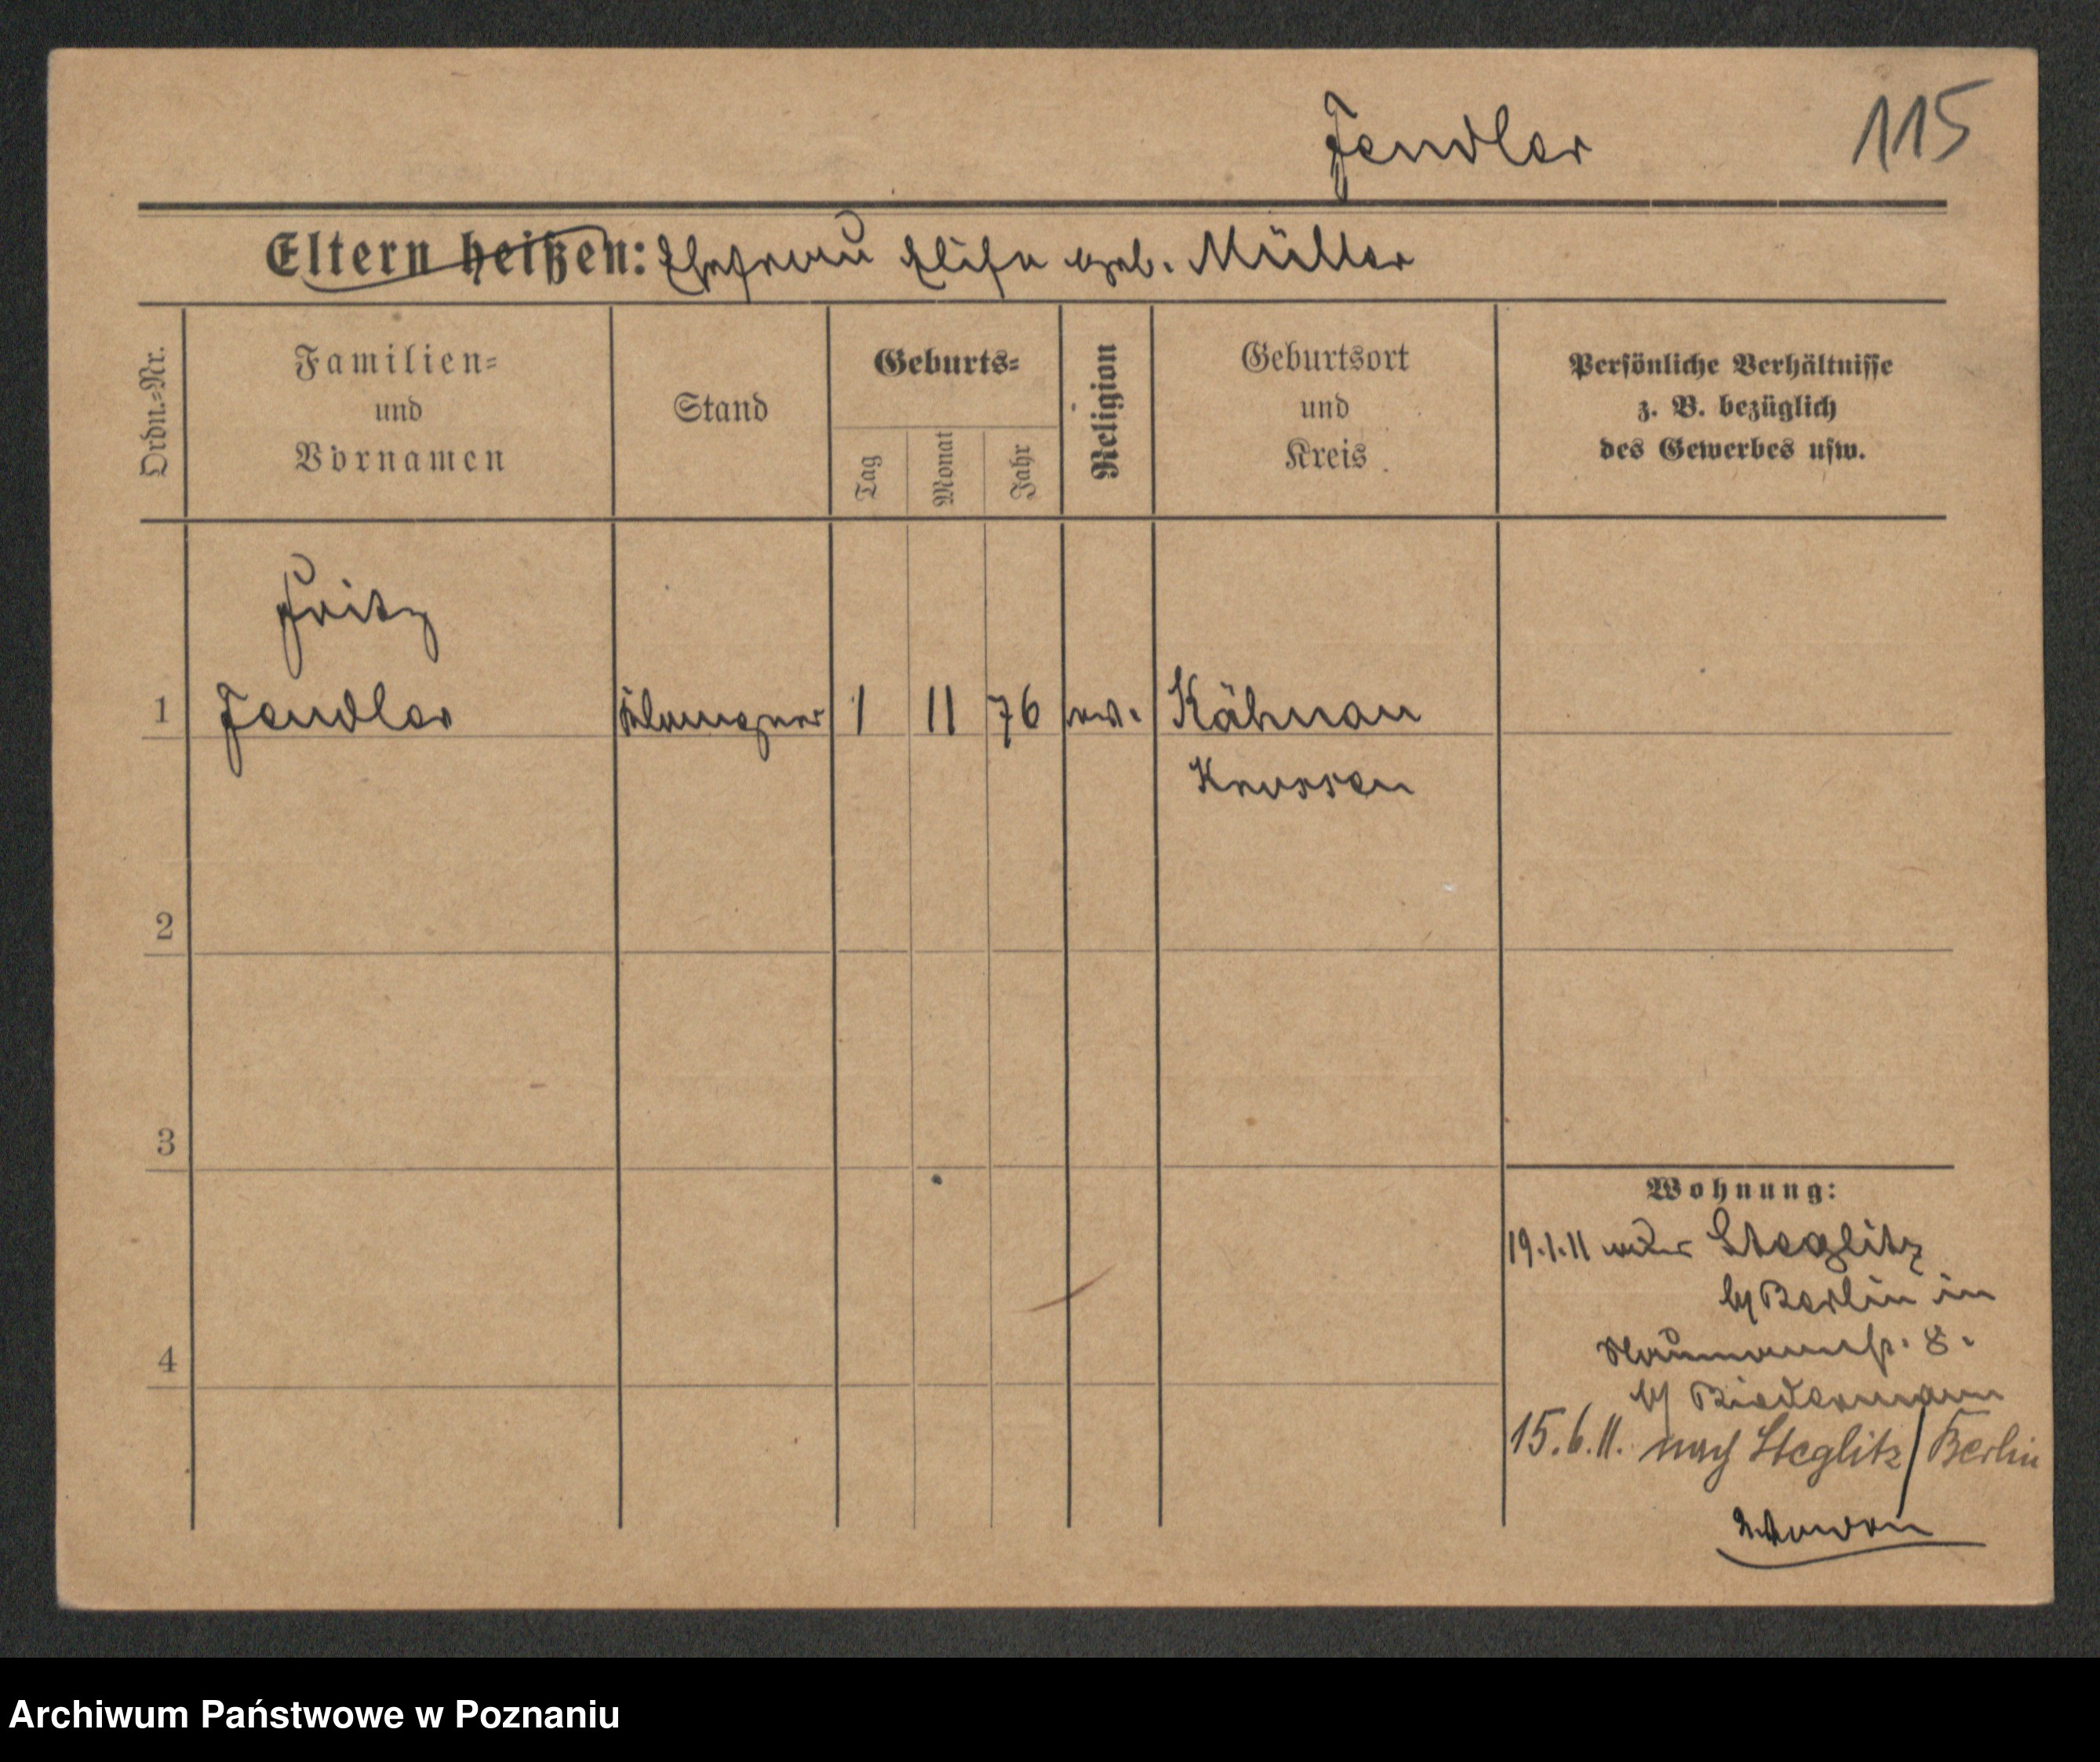 Jendler 115
Eltern heißen: Ehefrau Elise geb. Müller
Ordn.-Nr.
Familien-
und
Vornamen
Stand
Geburts-
Tag
Monat
Jahr
Religion
Geburtsort
und
Kreis
Persönliche Verhältnisse
z. B. bezüglich
des Gewerbes usw.
Fritz
1 Jendler Klempner 1 11 76 ev. Kähnau
Krossen
2
3
4
Wohnung:
19.1.11 Steglitz
b/ Berlin in
8.
b/ Biedermann
15.6.11. nach Steglitz/Berlin